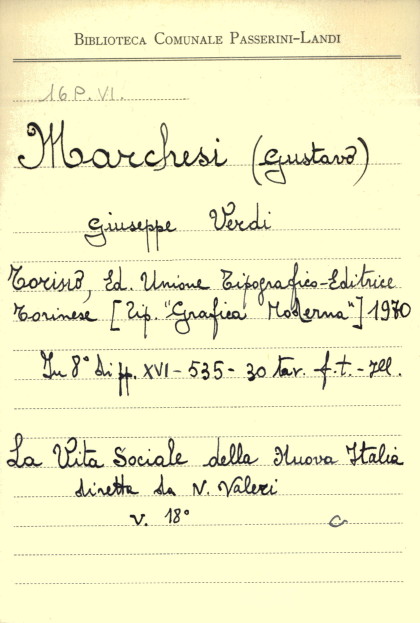 BIBLIOTECA COMUNALE PASSERINI-LANDI
16 P. VI.
Marchesi (Gustavo)
Giuseppe Verdi
Torino, Ed. Unione Tipografico-Editrice
Torinese [Tip. "Grafica Moderna"] 1970
In 8° di pp. XVI - 535 - 30 tav. f. t. - Ill.
La Vita Sociale della Nuova Italia
diretta da N. Valeri
v. 18° C